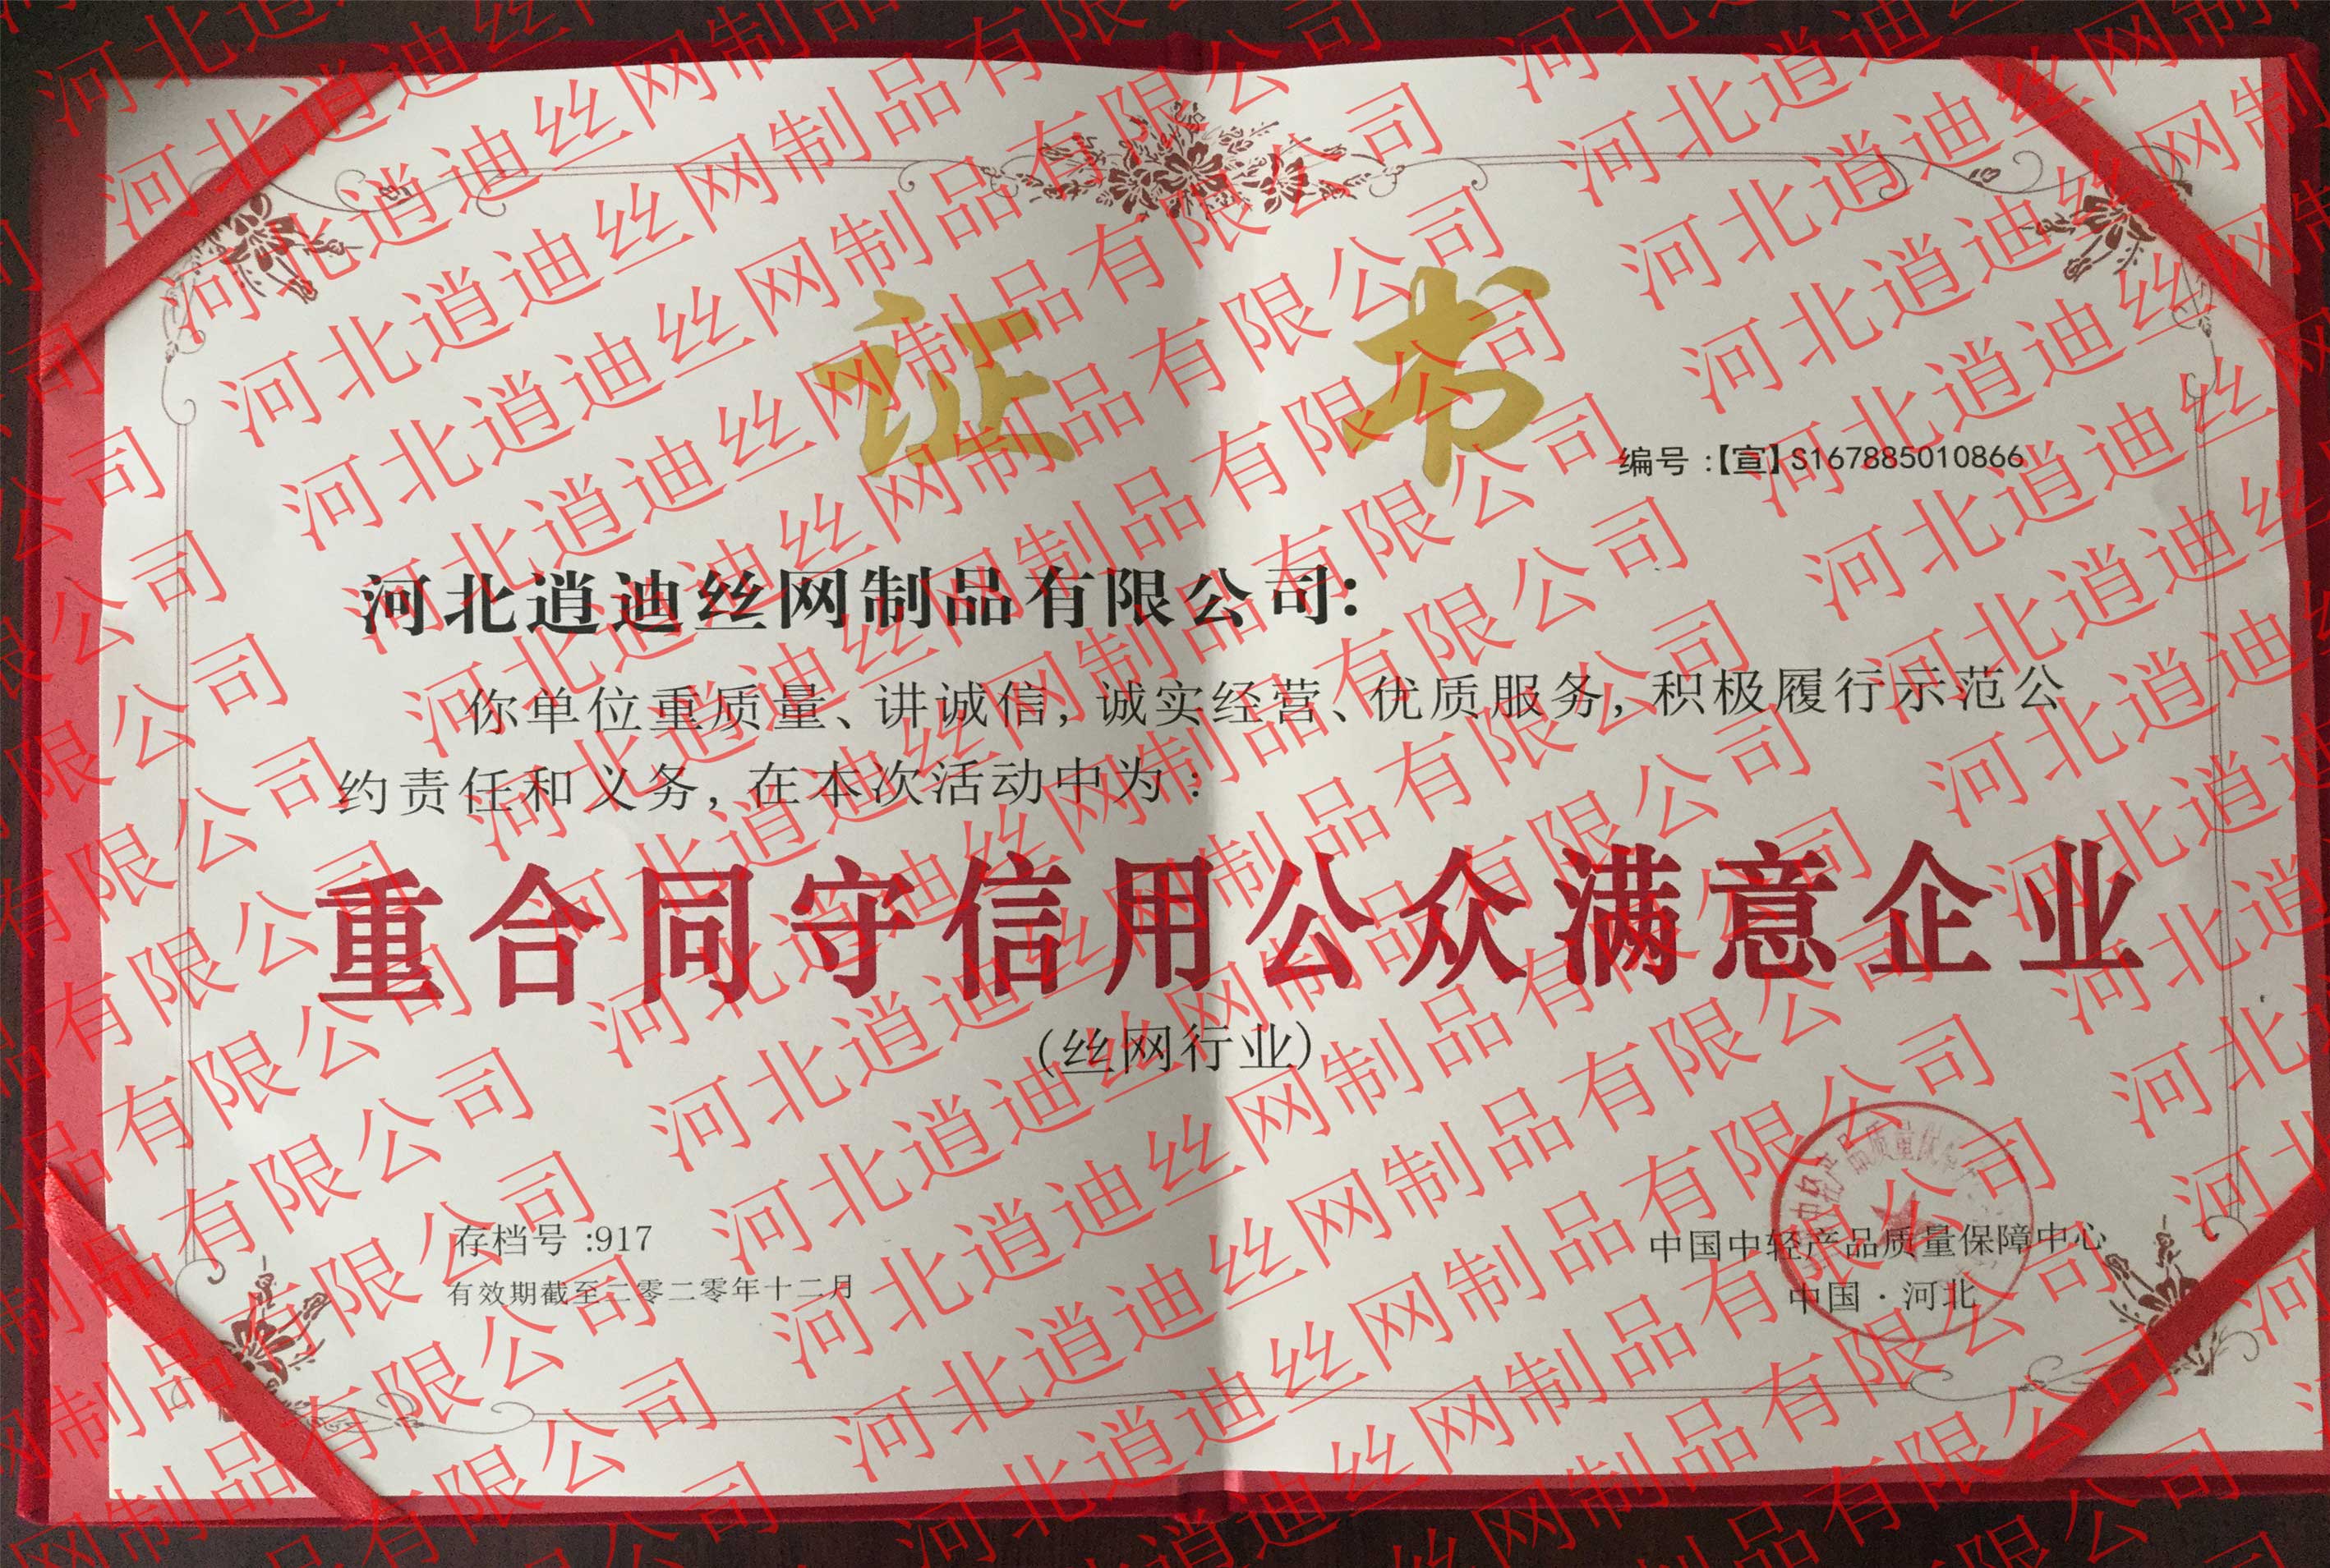 证书
编号:【宣】S167885010866
河北逍迪丝网制品有限公司:
你单位重质量、讲诚信,诚实经营、优质服务,积极履行示范公
约责任和义务,在本次活动中为:
重合同守信用公众满意企业
(丝网行业)
存档号:917
有效期截至二零二零年十二月
中国中轻产品质量保障中心
中国·河北
河北逍迪丝网制品有限公司